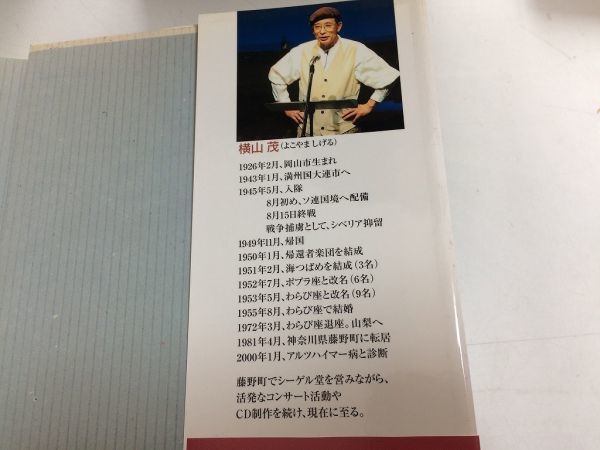 横山 茂(よこやま しげる)
1926年2月、岡山市生まれ
1943年1月、満州国大連市へ
1945年5月、入隊
8月初め、ソ連国境へ配備
8月15日終戦
戦争捕虜として、シベリア抑留
1949年11月、帰国
1950年1月、帰還者楽団を結成
1951年2月、海つばめを結成(3名)
1952年7月、ポプラ座と改名(6名)
1953年5月、わらび座と改名(9名)
1955年8月、わらび座で結婚
1972年3月、わらび座退座。山梨へ
1981年4月、神奈川県藤野町に転居
2000年1月、アルツハイマー病と診断
藤野町でシーゲル堂を営みながら、
活発なコンサート活動や
CD制作を続け、現在に至る。